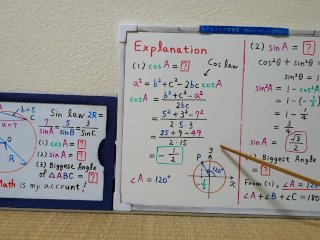 b=5
c
a=7
R
O
Sin law 2R=
7/sinA = 5/sinB = 3/sinC
(1) cosA = ?
(2) sinA = ?
(3) Biggest Angle
of △ABC = ?
Math is my account!
Explanation
(1) cosA = ?
Cos law
a² = b²+c²-2bc cosA
cosA = b²+c²-a²/2bc
= 5²+3²-7²/2·5·3
= 25+9-49/2·15
= -1/2
∠A = 120°
P
y
120°
x
(2) sinA = ?
cos²θ + sin²θ
sin²θ = 1
sin²A = 1-cos²A
= 1-(-1/
= 3/4
sinA = √3/2
(3) Biggest
= ?
From (1), ∠A = 120°
∠A+∠B+∠C=180